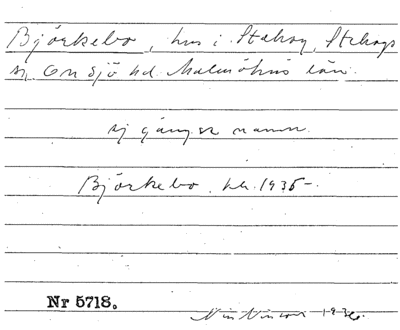 Björkebo, hus i Stehag, Stehags
sn, Onsjö hd. Malmöhus län.
ej gängse namn.
Björkebo. hb. 1935-.
Nr 5718.
1936.